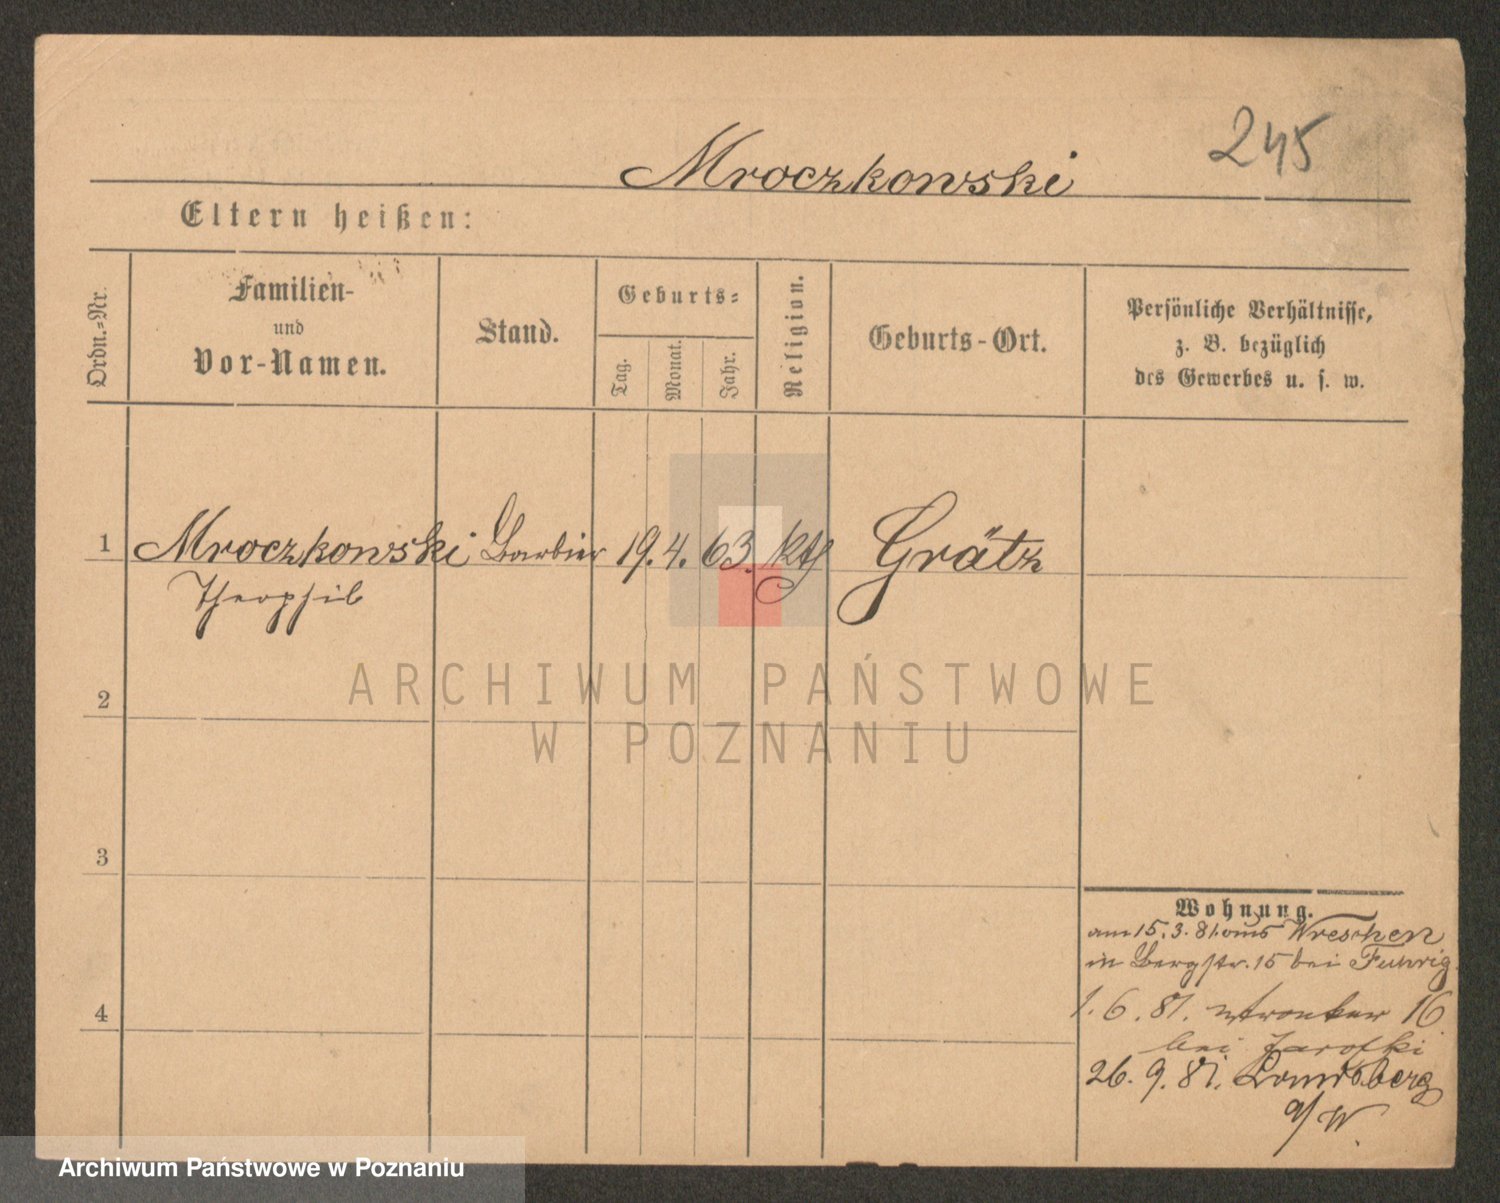 245
Mroczkowski
Eltern heißen:
Ordn.-Nr.
Familien-
und
Vor-Namen.
Stand.
Geburts-
Tag.
Monat.
Jahr.
Religion.
Geburts-Ort.
Persönliche Verhältnisse,
z. B. bezüglich
des Gewerbes u. s. w.
1 Mroczkowski Barbier 19. 4. 63. kth Grätz
Theophil
2
3
4
Wohnung.
am 15. 3. 81. aus Wreschen
in Bergstr. 15 bei
1. 6. 81. 16
bei Jarofki
26. 9. 81. Landsberg
a/W.
ARCHIWUM PAŃSTWOWE
W POZNANIU
Archiwum Państwowe w Poznaniu